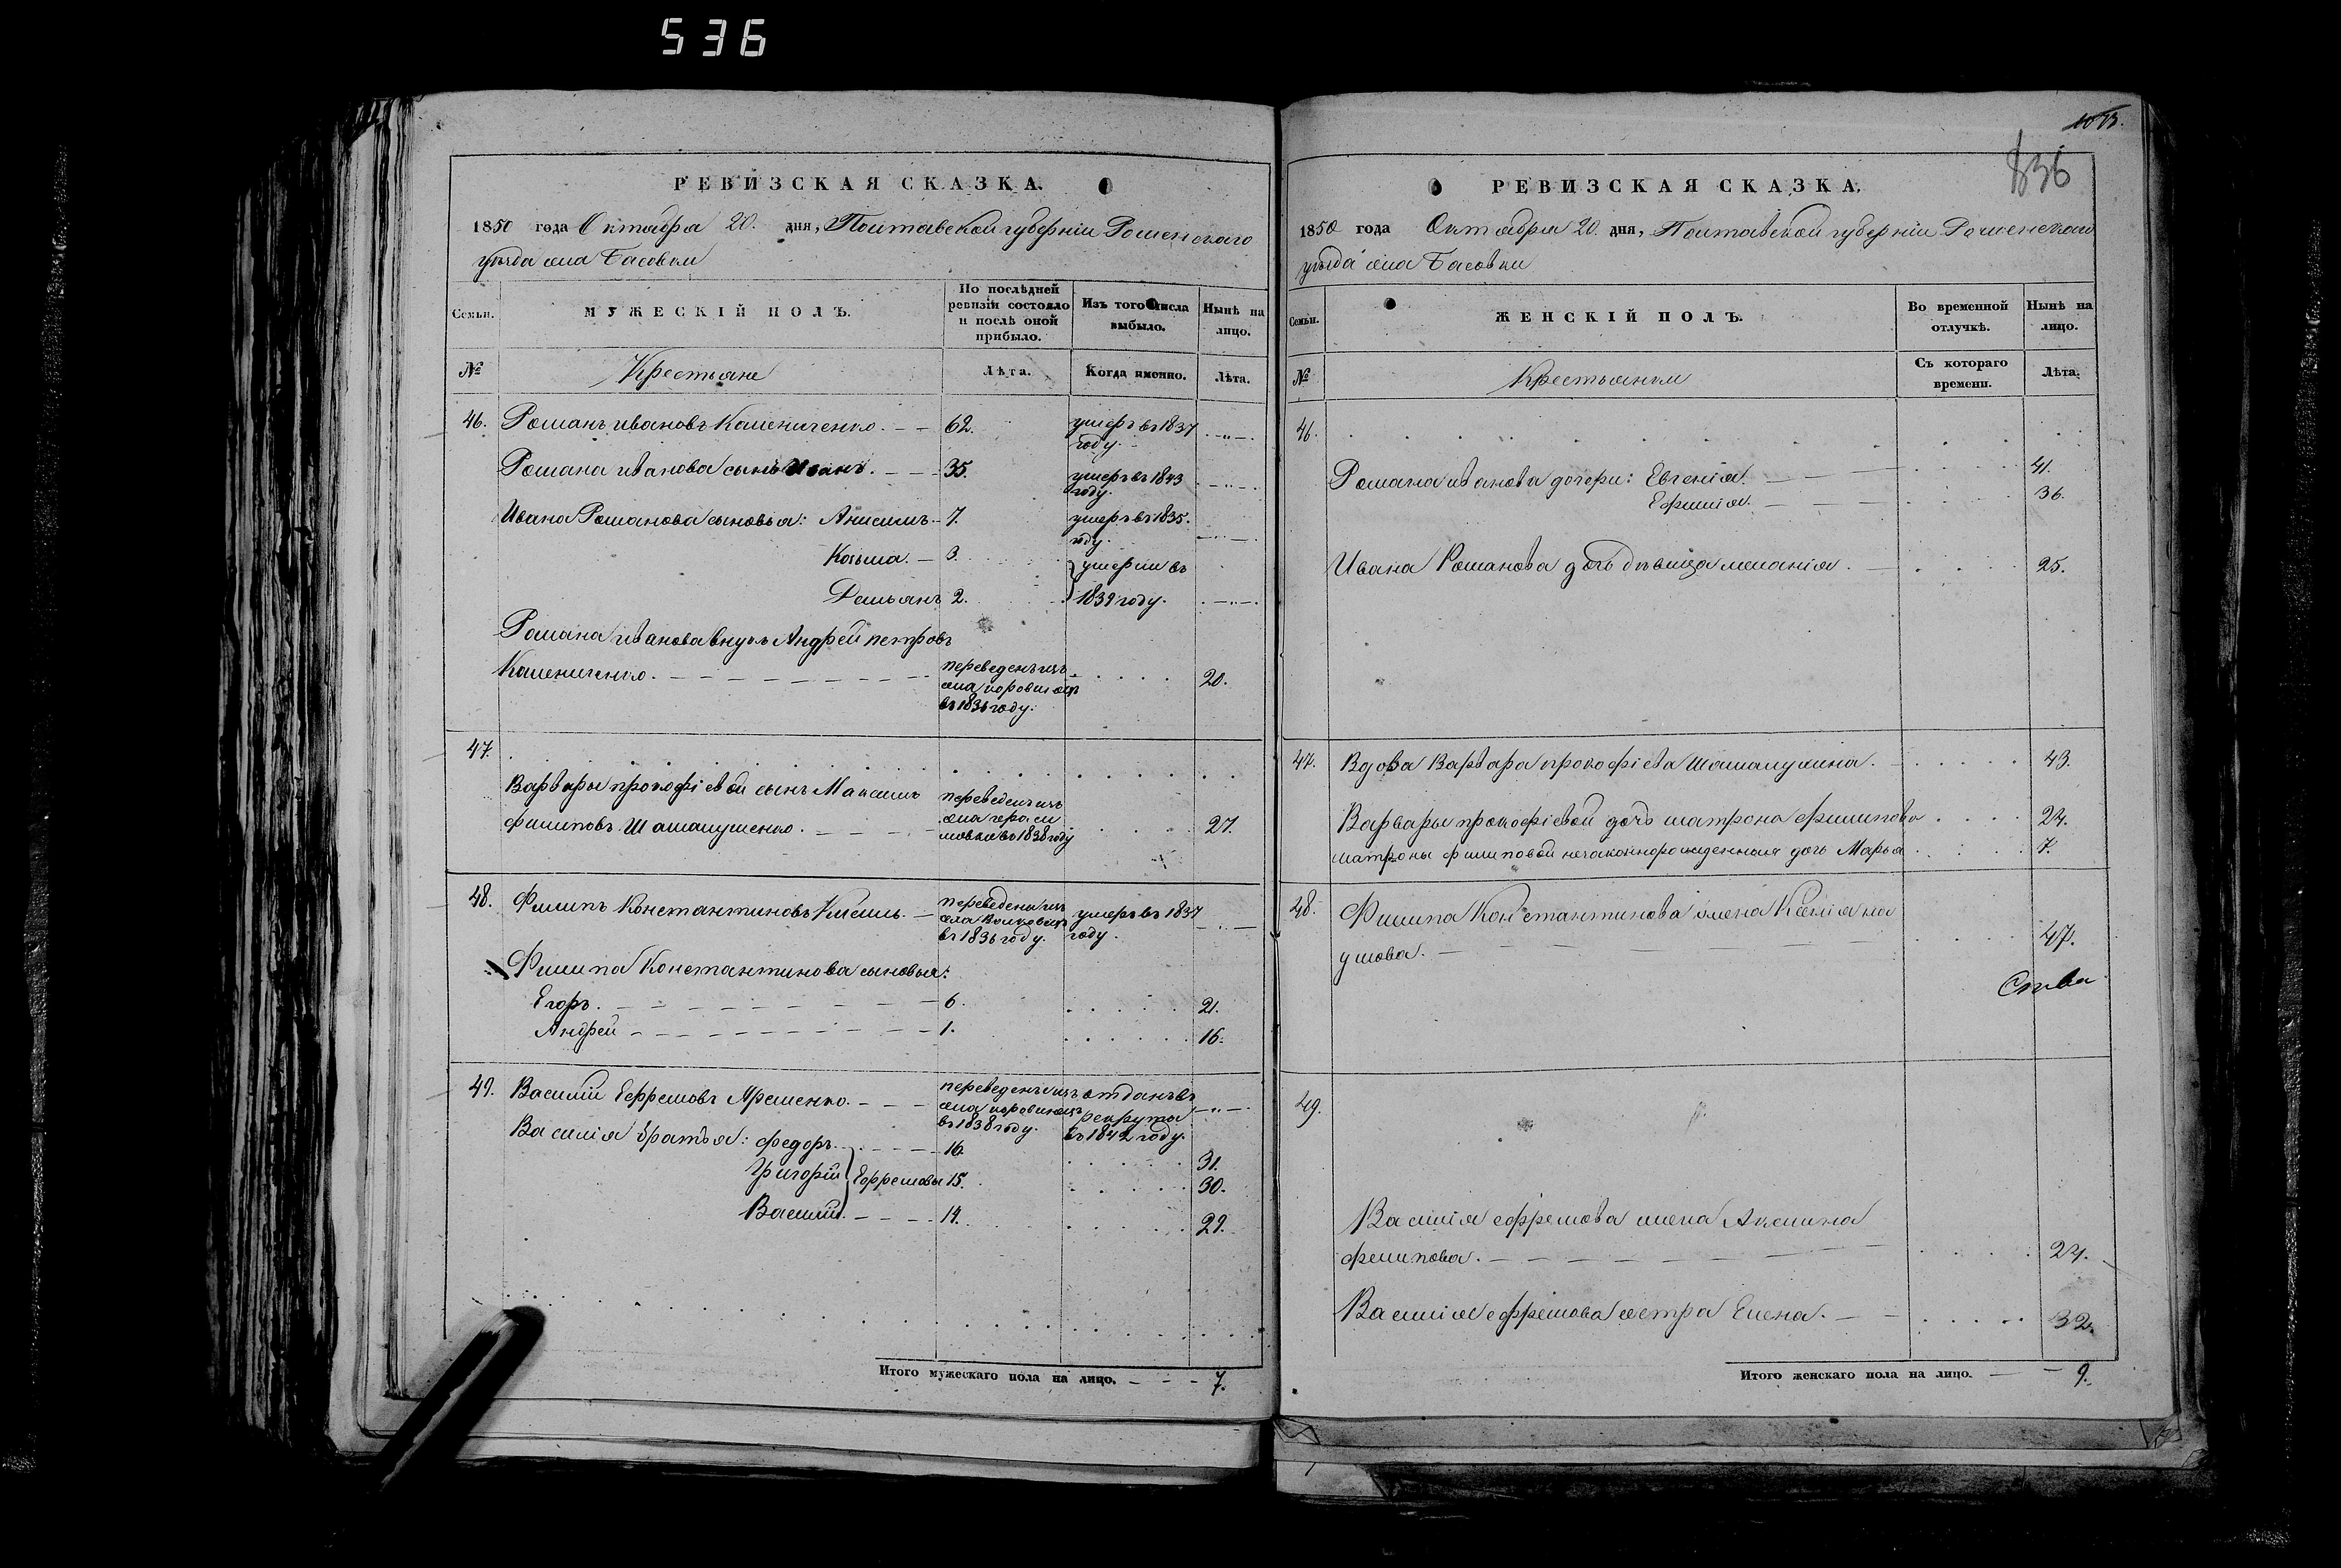 536
РЕВИЗСКАЯ СКАЗКА.
1850 года Октября 20. дня, Полтавской губерніи Роменскаго
уѣзда села Басовки
Семьи.
МУЖЕСКІЙ ПОЛЪ.
По послѣдней ревизіи состояло и послѣ оной прибыло.
Изъ того числа выбыло.
Нынѣ на лицо.
№ Крестьяне Лѣта. Когда именно. Лѣта.
46. Романъ Ивановъ Камениченко. 62. умеръ въ 1837 году.
Романа Иванова сынъ Иванъ. 35. умеръ въ 1843 году.
Ивана Романова сыновья: Анисимъ. 7. умеръ въ 1835. году.
Козьма. 3. умерли въ
Демьянъ 2. 1839 году.
Романа Иванова внукъ Андрей Петровъ
Камениченко. переведенъ изъ села въ 1836 году. 20.
47.
Варвары Прокофіевой сынъ Максимъ переведенъ изъ
Филиповъ Шаталушенко. села въ 1838 году 27.
48. Филипъ Константиновъ переведенъ изъ села въ 1836 году. умеръ въ 1837 году.
Филипа Константинова сыновья:
Егоръ. 6. 21.
Андрей 1. 16.
49. Василій Ефремовъ Яременко. переведенъ изъ села въ 1838 году. отданъ въ рекрута въ 1842 году.
Василія братья: Федоръ. 16. 31.
Григорій Ефремовы 15. 30.
Василій. 14. 29.
Итого мужескаго пола на лицо. 7.
1073.
836
РЕВИЗСКАЯ СКАЗКА.
1850 года Октября 20. дня, Полтавской губерніи Роменскаго
уѣзда села Басовки
Семьи.
ЖЕНСКІЙ ПОЛЪ.
Во временной отлучкѣ.
Нынѣ на лицо.
№ Крестьянки Съ котораго времени. Лѣта.
46.
Романа Иванова дочери: Евгенія. 41.
Ефимія. 36.
Ивана Романова дочь дѣвица Меланія. 25.
47. Вдова Варвара Прокофіева 43.
Варвары Прокофіевой дочь Матрона Филипова 24.
Матроны Филиповой незаконнорожденная дочь Марья 7.
48. Филипа Константинова жена Ксенія
47.
49.
Василія Ефремова жена Аксинья
Филипова. 24.
Василія Ефремова сестра Елена. 32.
Итого женскаго пола на лицо. 9.